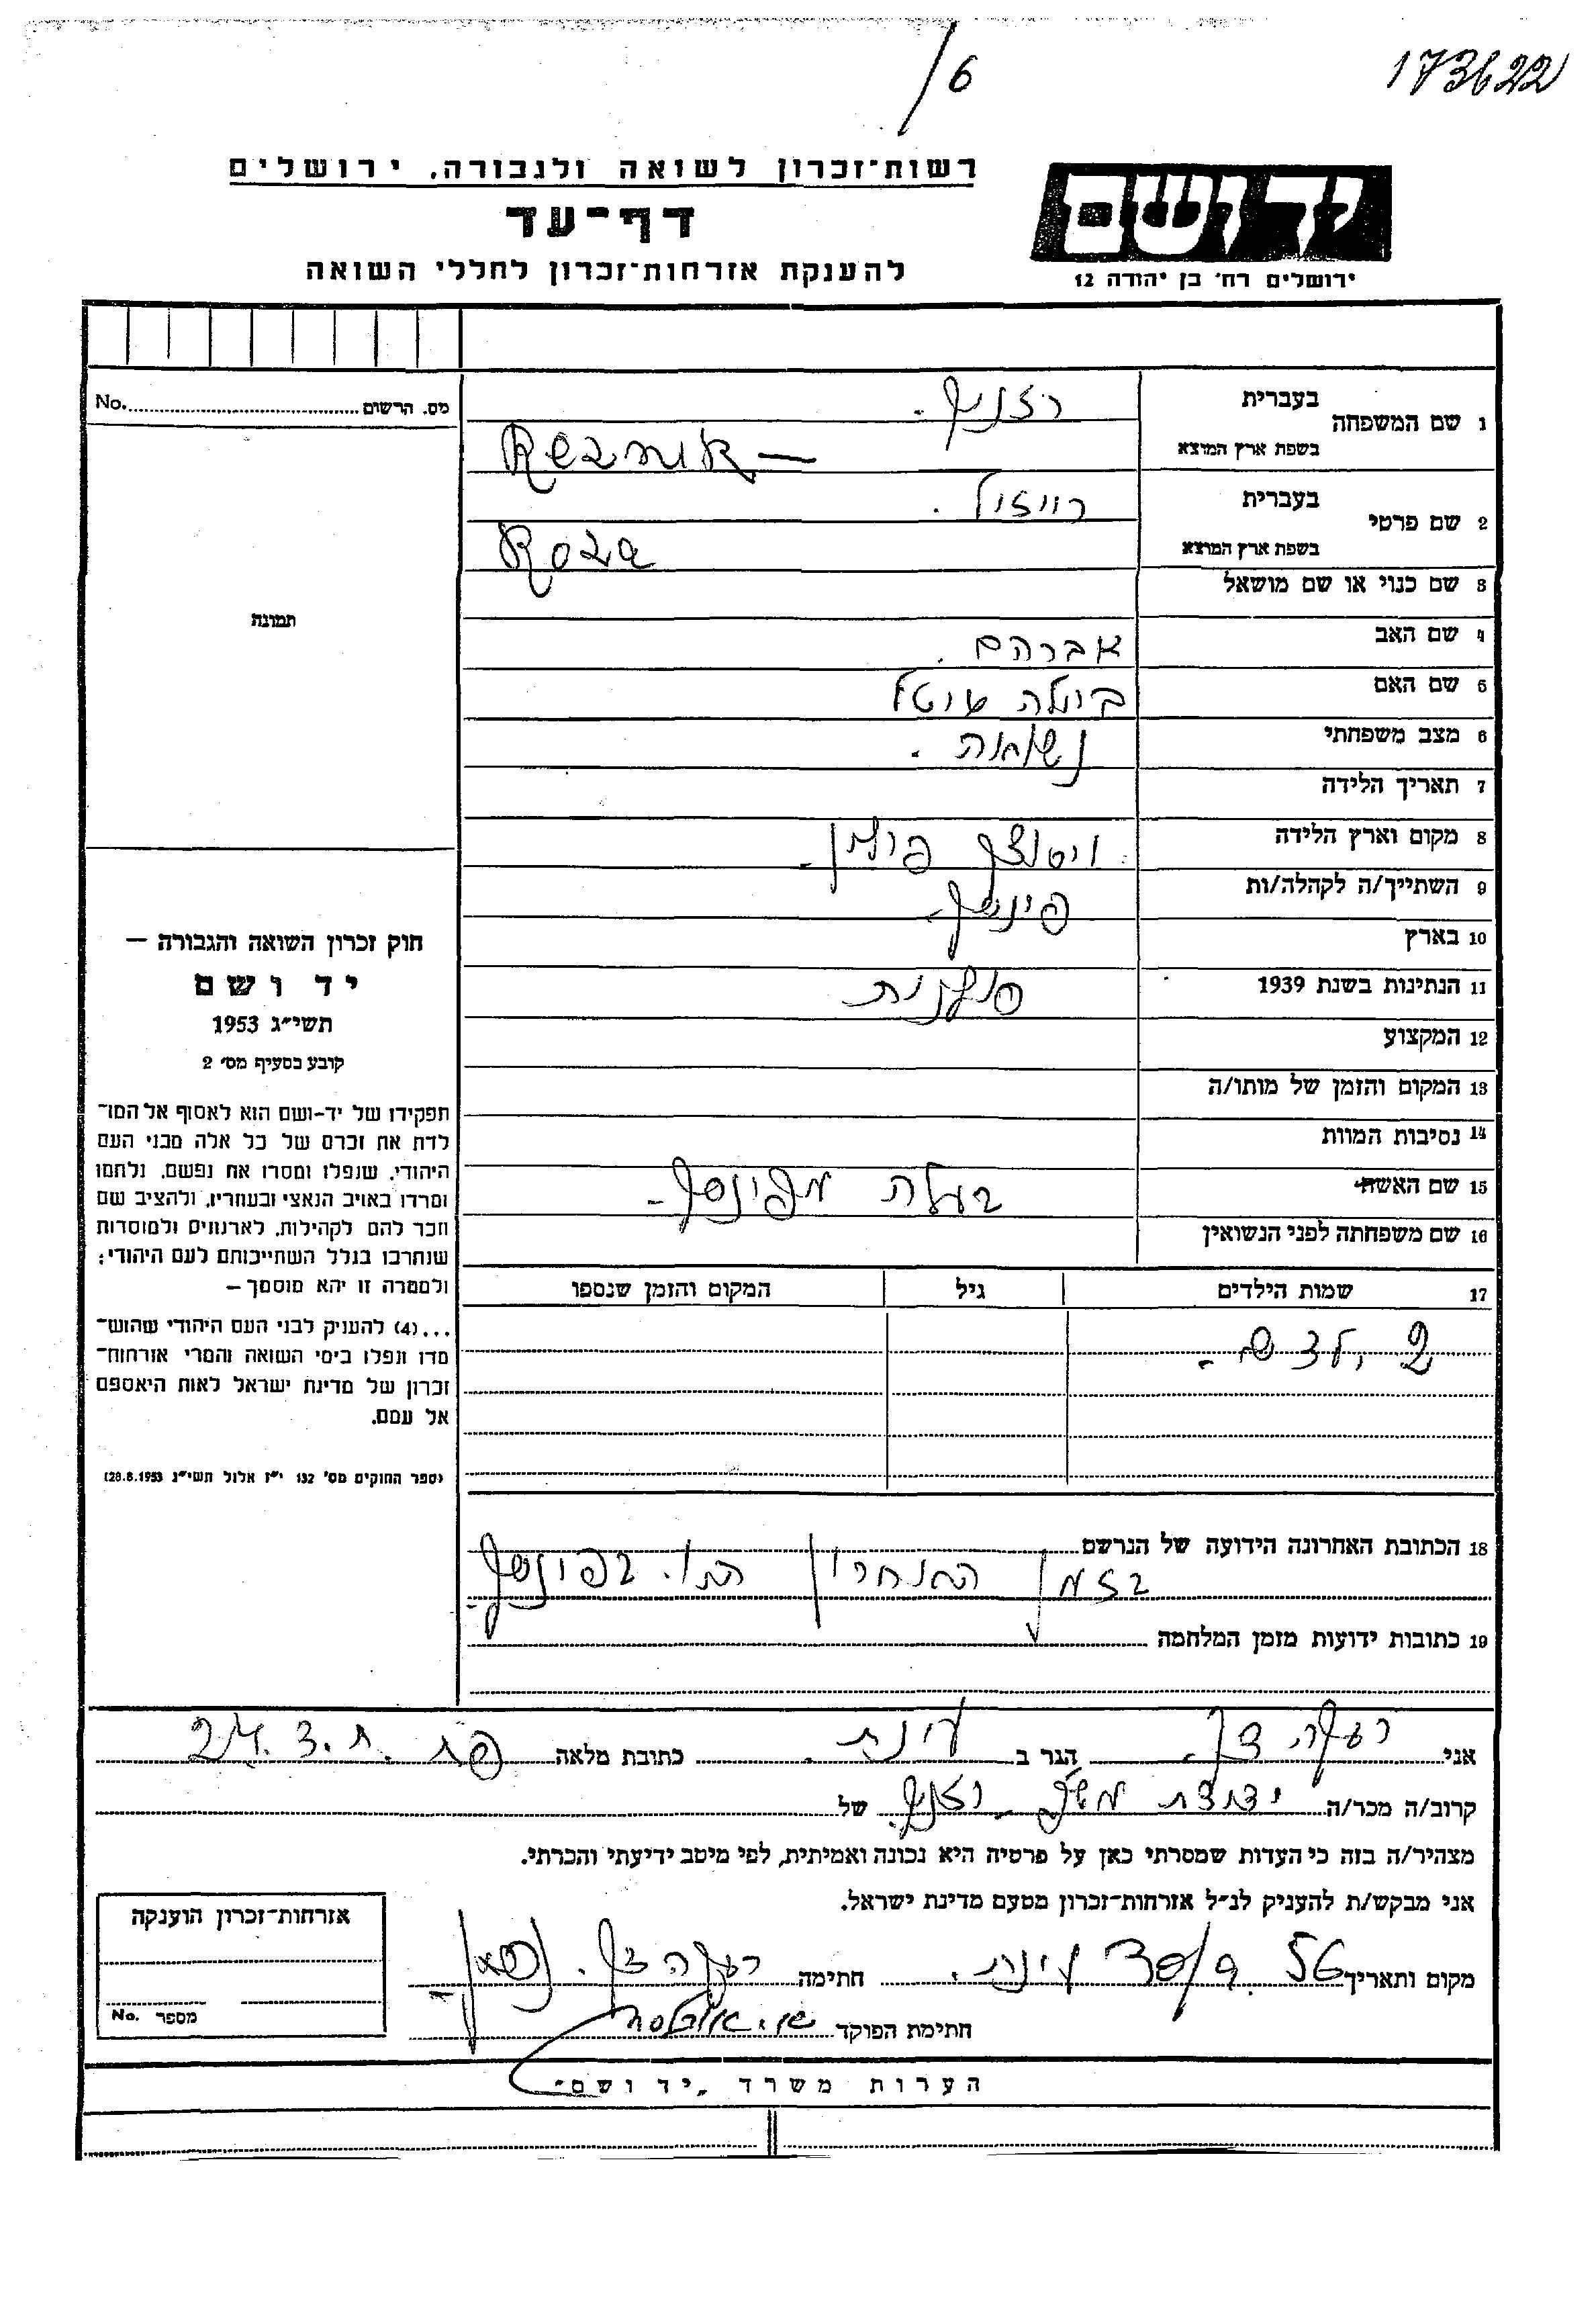 173622
/6
רשות־זכרון לשואה ולגבורה, ירושלים
יד ושם
דף־עד
ירושלים רח' בן יהודה 12
להענקת אזרחות־זכרון לחללי השואה
מס. הרשום No.
תמונה
חוק זכרון השואה והגבורה —
יד ושם
תשי״ג 1953
קובע בסעיף מס' 2
תפקידו של יד-ושם הוא לאסוף אל המו־
לדת את זכרם של כל אלה מבני העם
היהודי, שנפלו ומסרו את נפשם, נלחמו
ומרדו באויב הנאצי ובעוזריו, ולהציב שם
וזכר להם לקהילות, לארגונים ולמוסדות
שנחרבו בגלל השתייכותם לעם היהודי;
ולמטרה זו יהא מוסמך —
...(4) להעניק לבני העם היהודי שהוש־
מדו ונפלו בימי השואה והמרי אזרחות־
זכרון של מדינת ישראל לאות היאספם
אל עמם.
(ספר החוקים מס' 132 י״ז אלול תשי״ג 28.8.1953)
1 שם המשפחה בעברית רזניק.
בשפת ארץ המוצא
2 שם פרטי בעברית רייזול.
בשפת ארץ המוצא Roza
3 שם כנוי או שם מושאל
4 שם האב אברהם.
5 שם האם ביילה
6 מצב משפחתי נשואה.
7 תאריך הלידה
8 מקום וארץ הלידה פולין
9 השתייך/ה לקהלה/ות פינסק
10 בארץ
11 הנתינות בשנת 1939 פולנית
12 המקצוע
13 המקום והזמן של מותו/ה
14 נסיבות המוות
15 שם האשה בעלה מפינסק
16 שם משפחתה לפני הנשואין
17 שמות הילדים גיל המקום והזמן שנספו
2 ילדים.
18 הכתובת האחרונה הידועה של הנרשם
בזמן האחרון בפינסק
19 כתובות ידועות מזמן המלחמה
אני הגר ב כתובת מלאה
קרוב/ה מכר/ה ידידת משפ. רזניק. של
מצהיר/ה בזה כי העדות שמסרתי כאן על פרטיה היא נכונה ואמיתית, לפי מיטב ידיעתי והכרתי.
אני מבקש/ת להעניק לנ״ל אזרחות־זכרון מטעם מדינת ישראל.
מקום ותאריך 30/9.56 חתימה
חתימת הפוקד
אזרחות־זכרון הוענקה
מספר No.
הערות משרד „יד ושם״